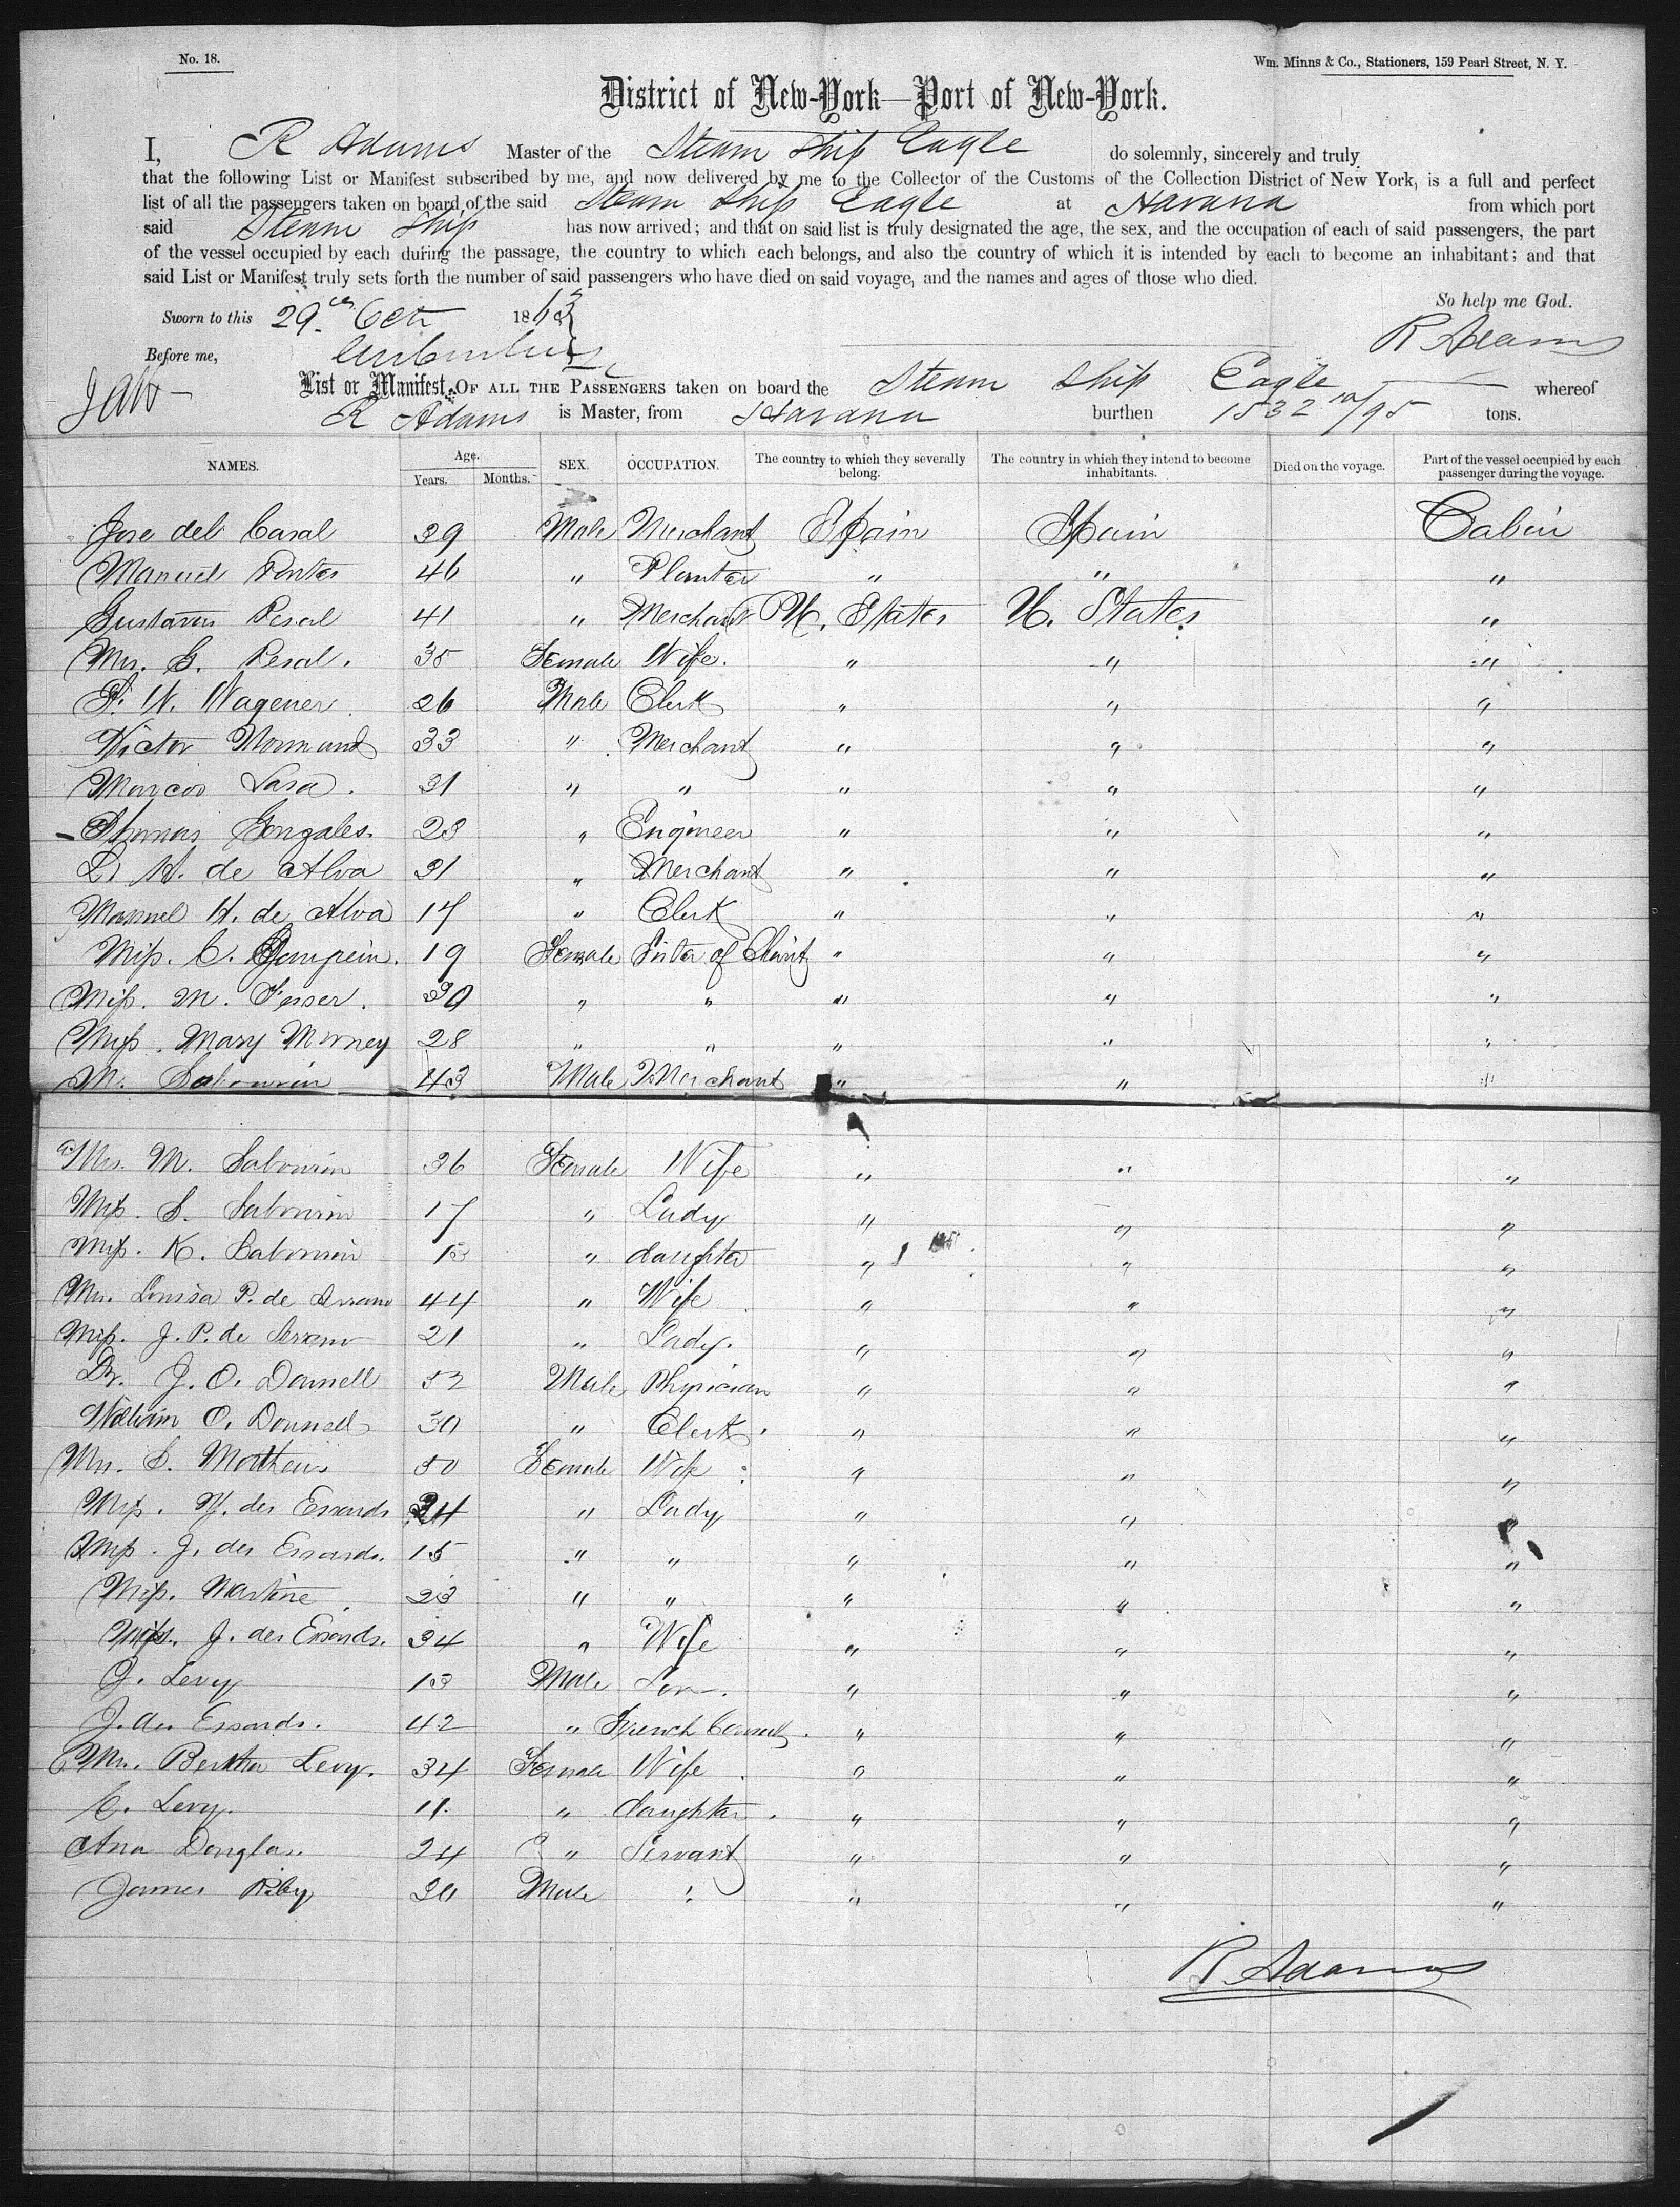 No. 18.
Wm. Minns & Co., Stationers, 159 Pearl Street, N. Y.
District of New-York—Port of New-York.
I, R Adams Master of the Steam Ship Eagle do solemnly, sincerely and truly
that the following List or Manifest subscribed by me, and now delivered by me to the Collector of the Customs of the Collection District of New York, is a full and perfect
list of all the passengers taken on board of the said Steam Ship Eagle at Havana from which port
said Steam Ship has now arrived; and that on said list is truly designated the age, the sex, and the occupation of each of said passengers, the part
of the vessel occupied by each during the passage, the country to which each belongs, and also the country of which it is intended by each to become an inhabitant; and that
said List or Manifest truly sets forth the number of said passengers who have died on said voyage, and the names and ages of those who died.
So help me God.
Sworn to this 29th Oct 186
R Adams
Before me,
List or Manifest OF ALL THE PASSENGERS taken on board the Steam Ship Eagle whereof
R Adams is Master, from Havana burthen 1532 10/95 tons.
NAMES. Age. Years. Months. SEX. OCCUPATION. The country to which they severally belong. The country in which they intend to become inhabitants. Died on the voyage. Part of the vessel occupied by each passenger during the voyage.
Jose del Casal 39 Male Merchant Spain Spain Cabin
Manuel 46 " Planter " " "
Gustavus Pesal 41 " Merchant U. States U. States "
Mrs. G. Pesal. 35 Female Wife. " " "
F. W. Wagener 26 Male Clerk " " "
Victor Normand 33 " Merchant " " "
Marcos Lasa. 31 " " " " "
Thomas Gonzales. 28 " Engineer " " "
L. H. de Alva 31 " Merchant " " "
Manuel H. de Alva 17 " Clerk " " "
Miss. C. 19 Female Sister of Charity " " "
Miss. M. Fesser. 30 " " " " "
Miss. Mary Morney 28 " " " " "
M. Sabourin 43 Male Merchant " " "
Mrs. M. Sabourin 36 Female Wife " " "
Miss. S. Sabourin 17 " Lady " " "
Miss. K. Sabourin 13 " daughter " " "
Mrs. Louisa P. de 44 " Wife " " "
Miss. J. P. de 21 " Lady. " " "
Dr. J. O. Donnell 52 Male Physician " " "
William O. Donnell 30 " Clerk. " " "
Mrs. S. Mattheus 50 Female Wife " " "
Miss. des Essards 24 " Lady " " "
Miss. J. des Essards. 15 " " " " "
Miss. Martine 23 " " " " "
Mrs. J. des Essards. 34 " Wife " " "
J. Levy 13 Male Son. " " "
J. des Essards. 42 " French Consul. " " "
Mrs. Bertha Levy. 34 Female Wife " " "
C. Levy. 11. " daughter. " " "
Ana Douglas. 24 " Servant " " "
James Riley 30 Male " " " "
R. Adams